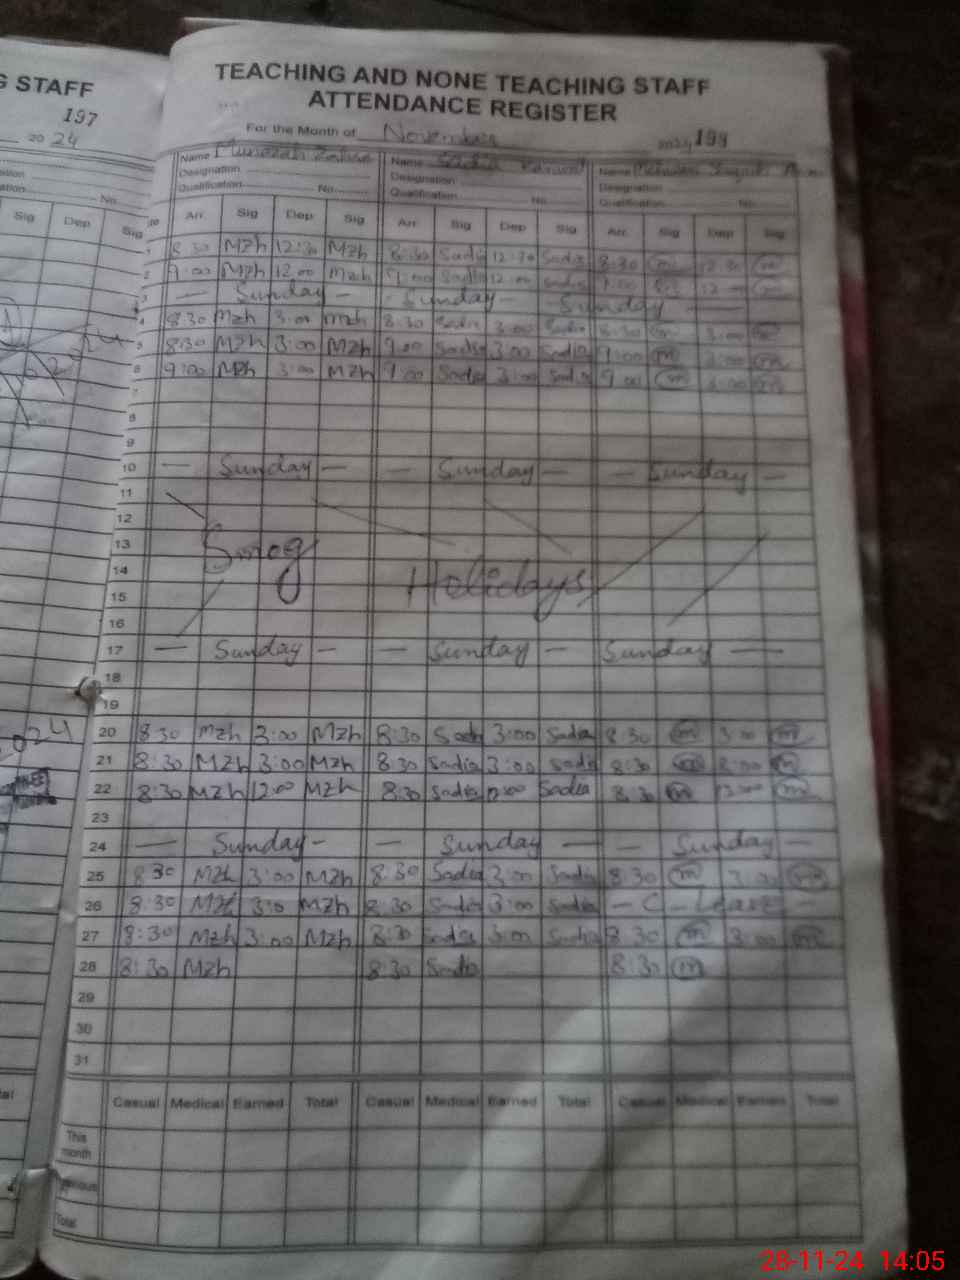 G STAFF
197
2024
TEACHING AND NONE TEACHING STAFF
ATTENDANCE REGISTER
For the Month of November 2024 199
Name Munazah Name Sadia Name
Designation Designation Designation
Qualification No Qualification No Qualification No
Sig Dep Sig Arr. Sig Dep Sig Arr. Sig Dep Sig Arr. Sig Dep Sig
1 8:30 Mzh 12:30 Mzh 8:30 Sadia 12:30 Sadia 8:30 m 12:30 m
2 9:00 Mzh 12:00 Mzh 9:00 Sadia 12:00 Sadia 9:00 12
3 — Sunday — - Sunday - Sunday -
4 8:30 Mzh 3:00 Mzh 8:30 Sadia 3:00 Sadia 8:30 m 3:00 m
5 8:30 Mzh 3:00 Mzh 9:00 Sadia 3:00 Sadia 9:00 m 3:00 m
6 9:00 Mzh 3:00 Mzh 9:00 Sadia 3:00 Sadia 9:00 m 3:00 m
7
8
9
10 — Sunday — — Sunday — — Sunday —
11
12
13 Smog
14 Holidays
15
16
17 — Sunday — — Sunday — Sunday —
18
19
20 8:30 Mzh 3:00 Mzh 8:30 Sadia 3:00 Sadia 8:30 m 3:00 m
21 8:30 Mzh 3:00 Mzh 8:30 Sadia 3:00 Sadia 8:30 m 3:00 m
22 8:30 Mzh 12:00 Mzh 8:30 Sadia 12:00 Sadia 8:30 m 12:00 m
23
24 — Sunday - — Sunday — — Sunday —
25 8:30 Mzh 3:00 Mzh 8:30 Sadia 3:00 Sadia 8:30 m 3:00 m
26 8:30 Mzh 3:0 Mzh 8:30 Sadia 3:00 Sadia — C - Leave -
27 8:30 Mzh 3:00 Mzh 8:30 Sadia 3:00 Sadia 8:30 m 3:00 m
28 8:30 Mzh 8:30 Sadia 8:30 m
29
30
31
Casual Medical Earned Total Casual Medical Earned Total Casual Medical Earned Total
This month
Previous
Total
28-11-24 14:05